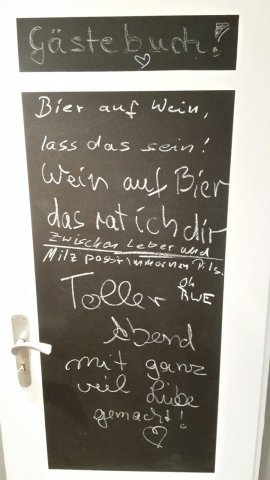 Gästebuch!
Bier auf Wein,
lass das sein!
Wein auf Bier
das rat ich dir
Zwischen Leber und
Milz passt immer ein Pils.
Oh
RWE
Toller
Abend
mit ganz
viel Liebe
gemacht!